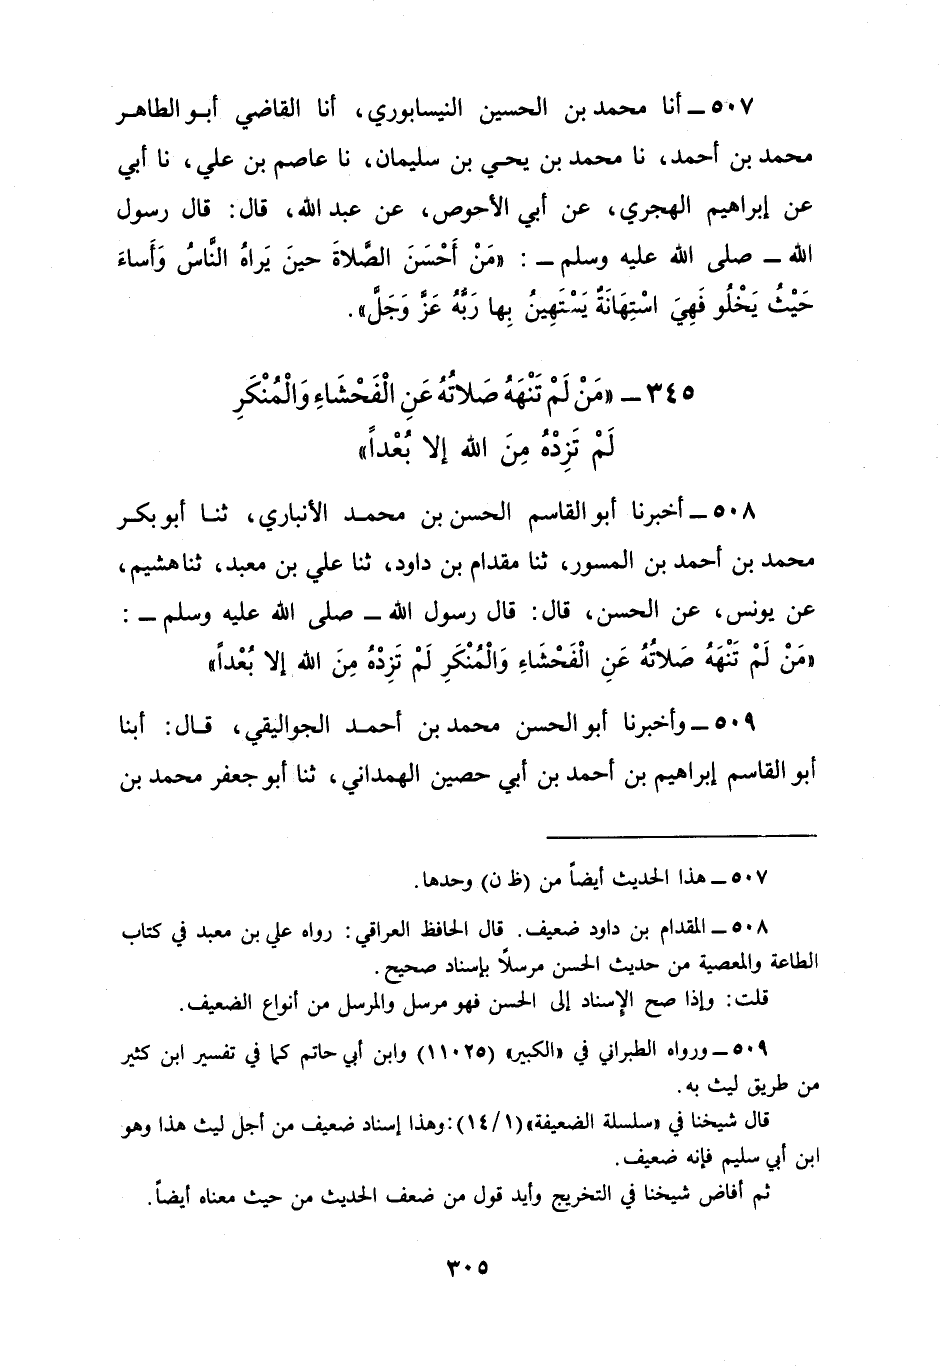 ٥٠٧ ــ أنا محمد بن الحسين النيسابوري، أنا القاضي أبـو الطاهـر
محمد بن أحمد، نا محمد بن يحيى بن سليمان، نا عاصم بن علي، نا أبي
عن إبراهيم الهجري، عن أبي الأحوص، عن عبد الله، قال: قال رسول
الله ــ صلى الله عليه وسلم ــ : «مَنْ أَحْسَنَ الصَّلاةَ حينَ يَراهُ النَّاسُ وَأَساءَ
حَيْثُ يَخْلُو فَهِيَ اسْتِهَانَةٌ يَسْتَهِينُ بِها رَبَّهُ عَزَّ وَجَلَّ».
٣٤٥ ــ «مَنْ لَمْ تَنْهَهُ صَلاتُهُ عَنِ الْفَحْشَاءِ وَالْمُنْكَرِ
لَمْ تَزِدْهُ مِنَ الله إلا بُعْداً»
٥٠٨ ــ أخبرنا أبو القاسم الحسن بن محمـد الأنباري، ثنـا أبو بكـر
محمد بن أحمد بن المسور، ثنا مقدام بن داود، ثنا علي بن معبد، ثنا هشيم،
عن يونس، عن الحسن، قال: قال رسول الله ــ صلى الله عليه وسلم ــ :
«مَنْ لَمْ تَنْهَهُ صَلاتُهُ عَنِ الْفَحْشَاءِ وَالْمُنْكَرِ لَمْ تَزِدْهُ مِنَ الله إلا بُعْداً»
٥٠٩ ــ وأخبرنا أبو الحسن محمد بن أحمـد الجواليقي، قـال: أبنا
أبو القاسم إبراهيم بن أحمد بن أبي حصين الهمداني، ثنا أبو جعفر محمد بن
٥٠٧ ــ هذا الحديث أيضاً من (ظ ن) وحدها.
٥٠٨ ــ المقدام بن داود ضعيف. قال الحافظ العراقي: رواه علي بن معبد في كتاب
الطاعة والمعصية من حديث الحسن مرسلاً بإسناد صحيح.
قلت: وإذا صح الإسناد إلى الحسن فهو مرسل والمرسل من أنواع الضعيف.
٥٠٩ ــ ورواه الطبراني في «الكبير» (١١٠٢٥) وابن أبي حاتم كما في تفسير ابن كثير
من طريق ليث به.
قال شيخنا في «سلسلة الضعيفة» (١٤/١): وهذا إسناد ضعيف من أجل ليث هذا وهو
ابن أبي سليم فإنه ضعيف.
ثم أفاض شيخنا في التخريج وأيد قول من ضعف الحديث من حيث معناه أيضاً.
٣٠٥